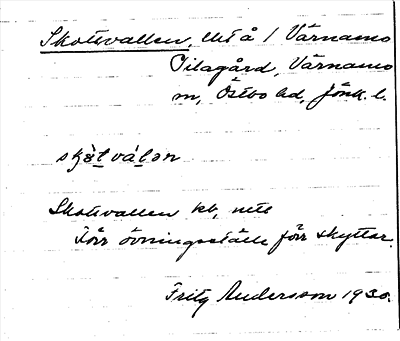 Skottvallen, utå / Värnamo
Pilagård, Värnamo
m, Östbo hd, Jönk. l.
skàtválən
Skottvallen kb, mtl
Förr övningsställe för skyttar.
Fritz Andersson 1930.